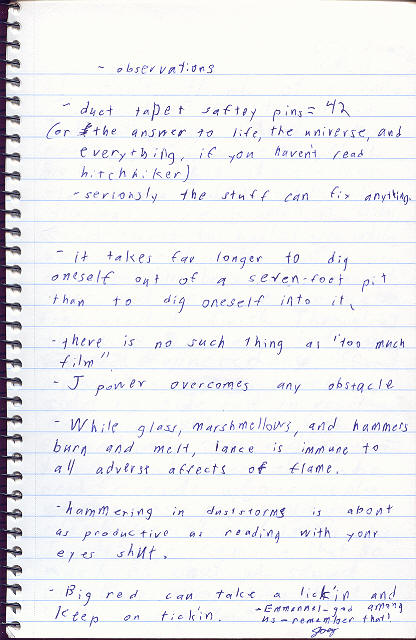 - observations
- duct tape+ saftey pins = 42
(or the answer to life, the universe, and
everything, if you haven't read
hitchhiker)
- seriously the stuff can fix anything.
- it takes far longer to dig
oneself out of a seven-foot pit
than to dig oneself into it.
- there is no such thing as "too much
film"
- J power overcomes any obstacle
- While glass, marshmellows, and hammers
burn and melt, lance is immune to
all adverse affects of flame.
- hammering in duststorms is about
as productive as reading with your
eyes shut.
- Big red can take a lickin and
keep on tickin.
- Emmanuel - god among
us - remember that!
Joey